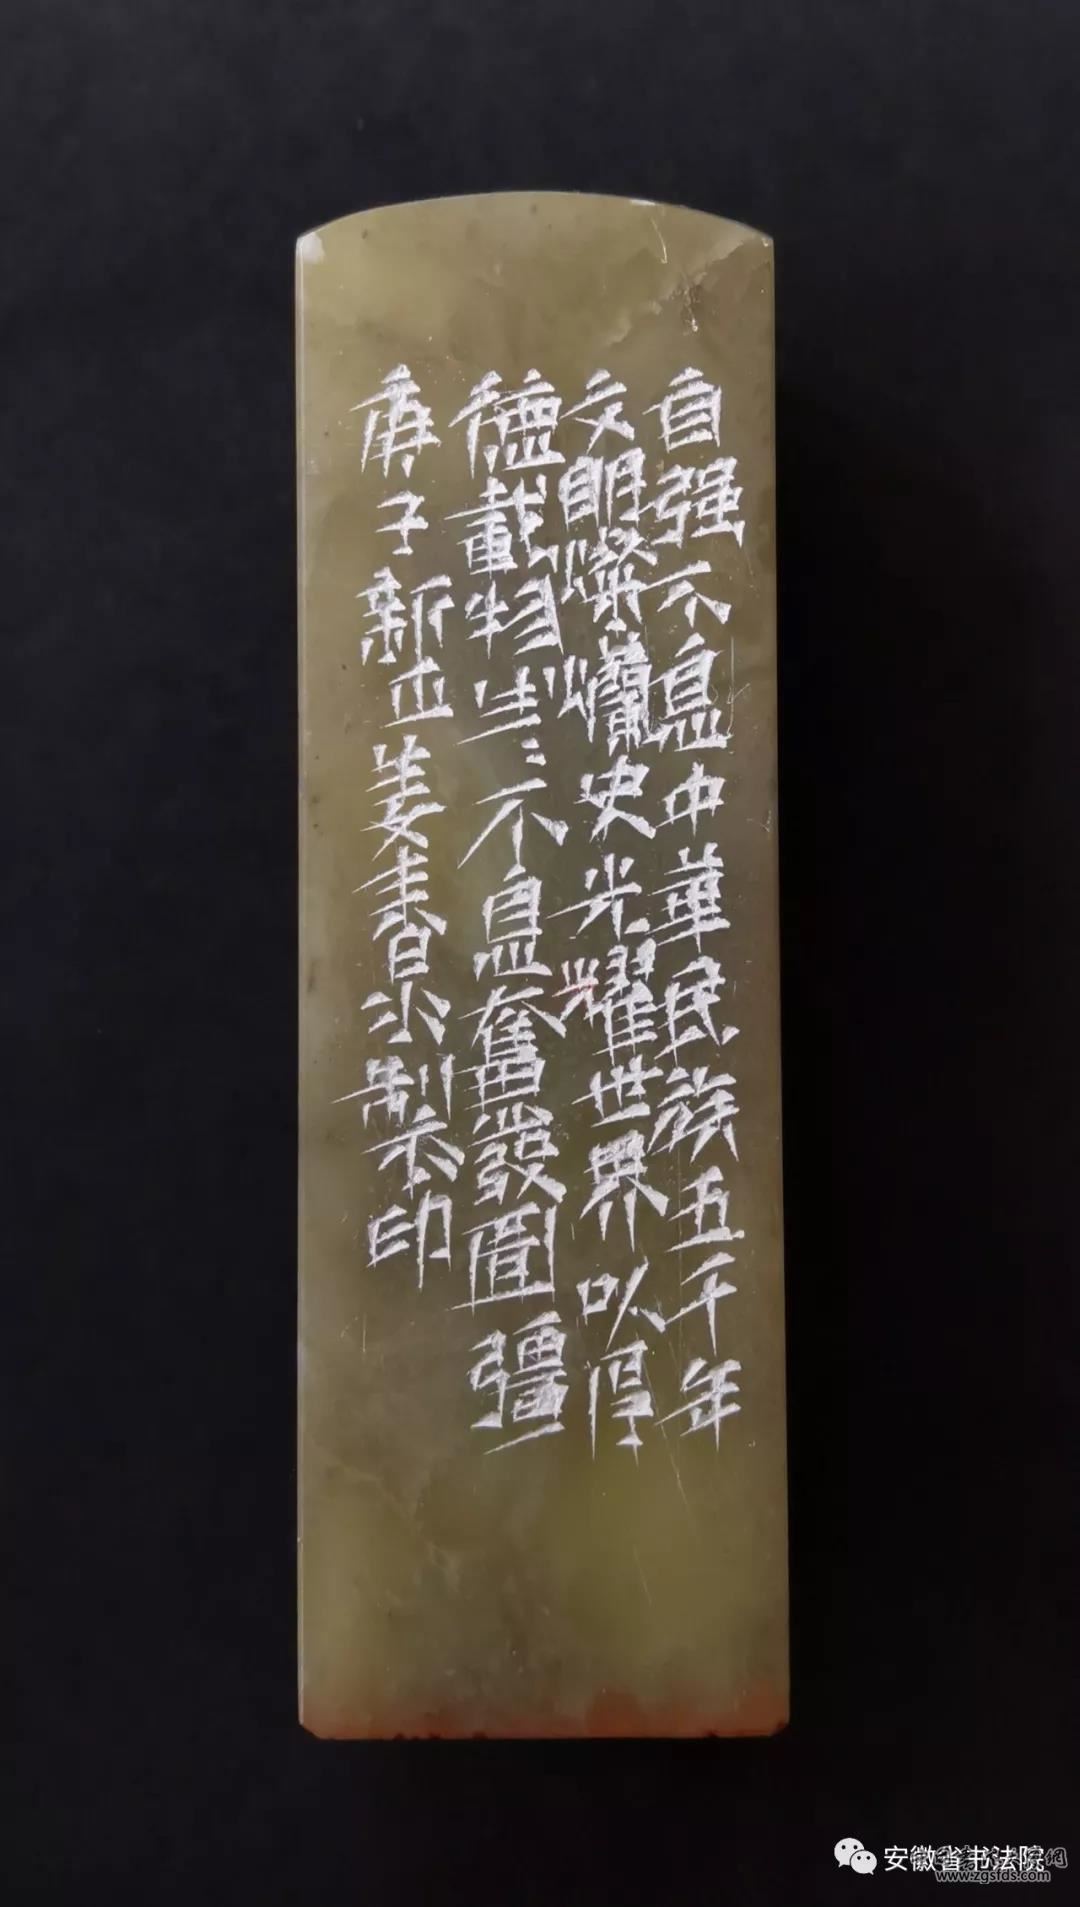 自强不息中華民族五千年
文明燦爛史光耀世界以厚
德載物生〻不息奮發圖彊
庚子新正姜書尘制本印
安徽省书法院
www.zgsfds.com